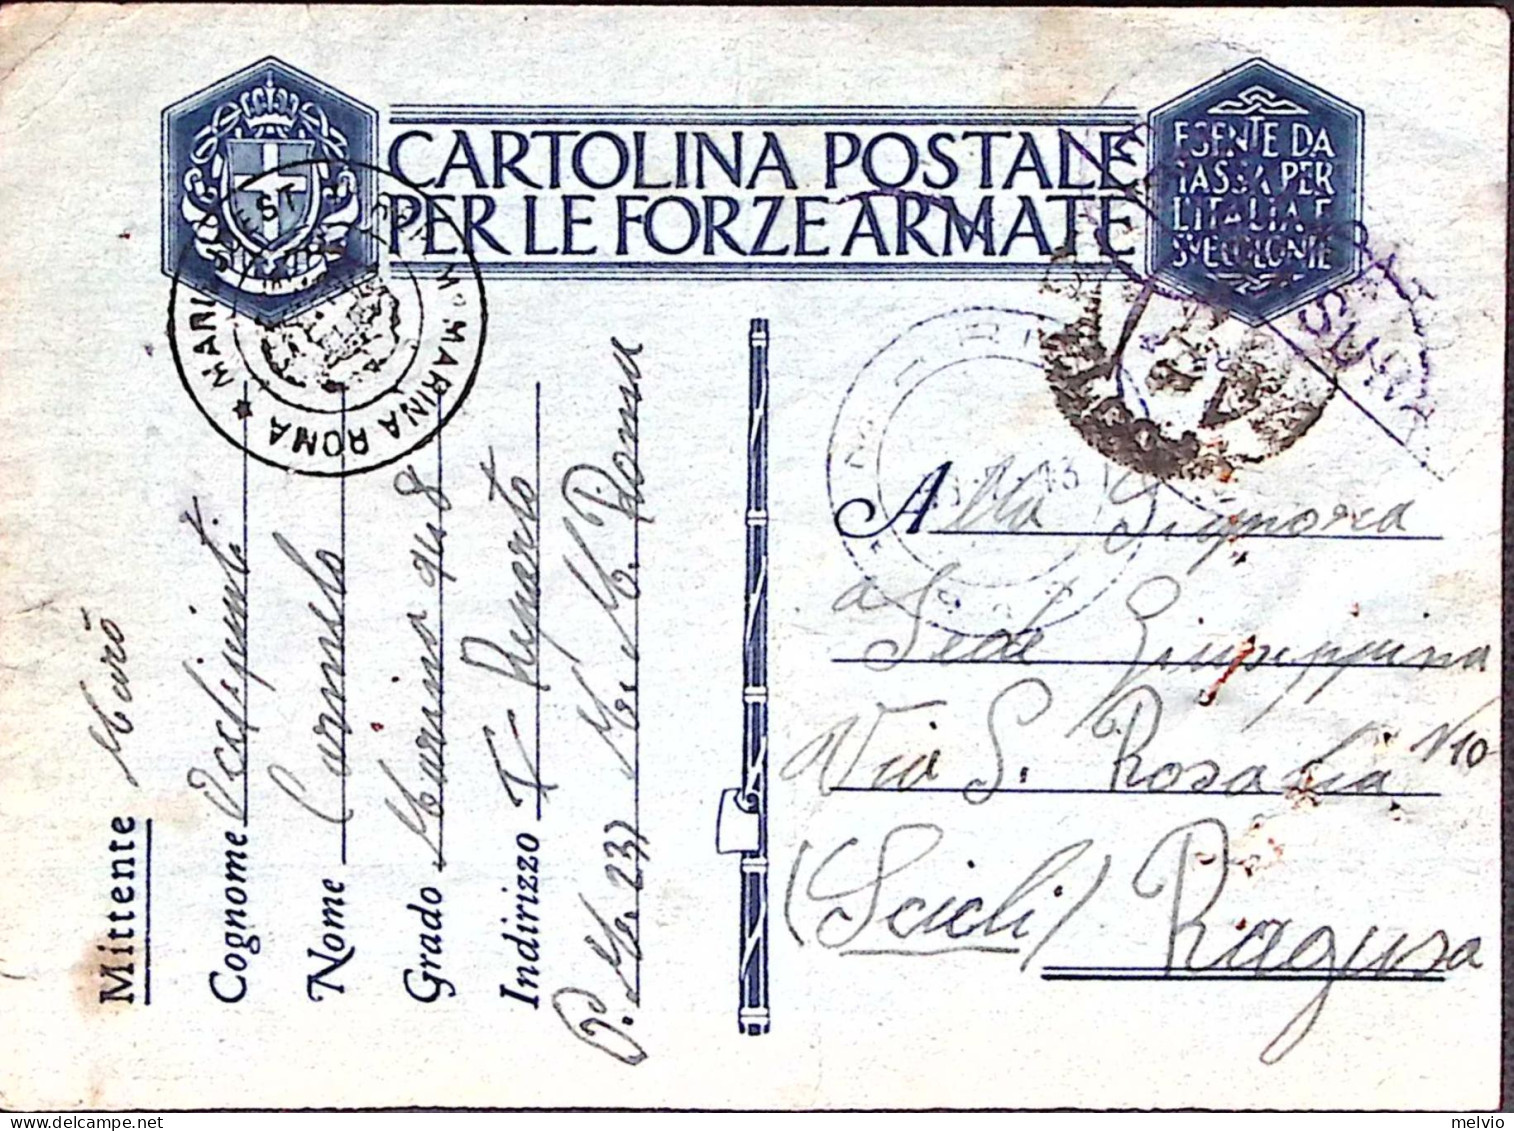 CARTOLINA POSTALE
PER LE FORZE ARMATE
ESENTE DA
TASSA PER
L'ITALIA E
SUE COLONIE
MARINA ROMA
Mittente Marò
Cognome
Nome Carmelo
Grado Marina qu 8
Indirizzo I Reparto
P. M. 237 M. M. Roma
Alla Signora
Sede Giuseppina
Via S. Rosalia N 10
(Scicli) Ragusa
melvio